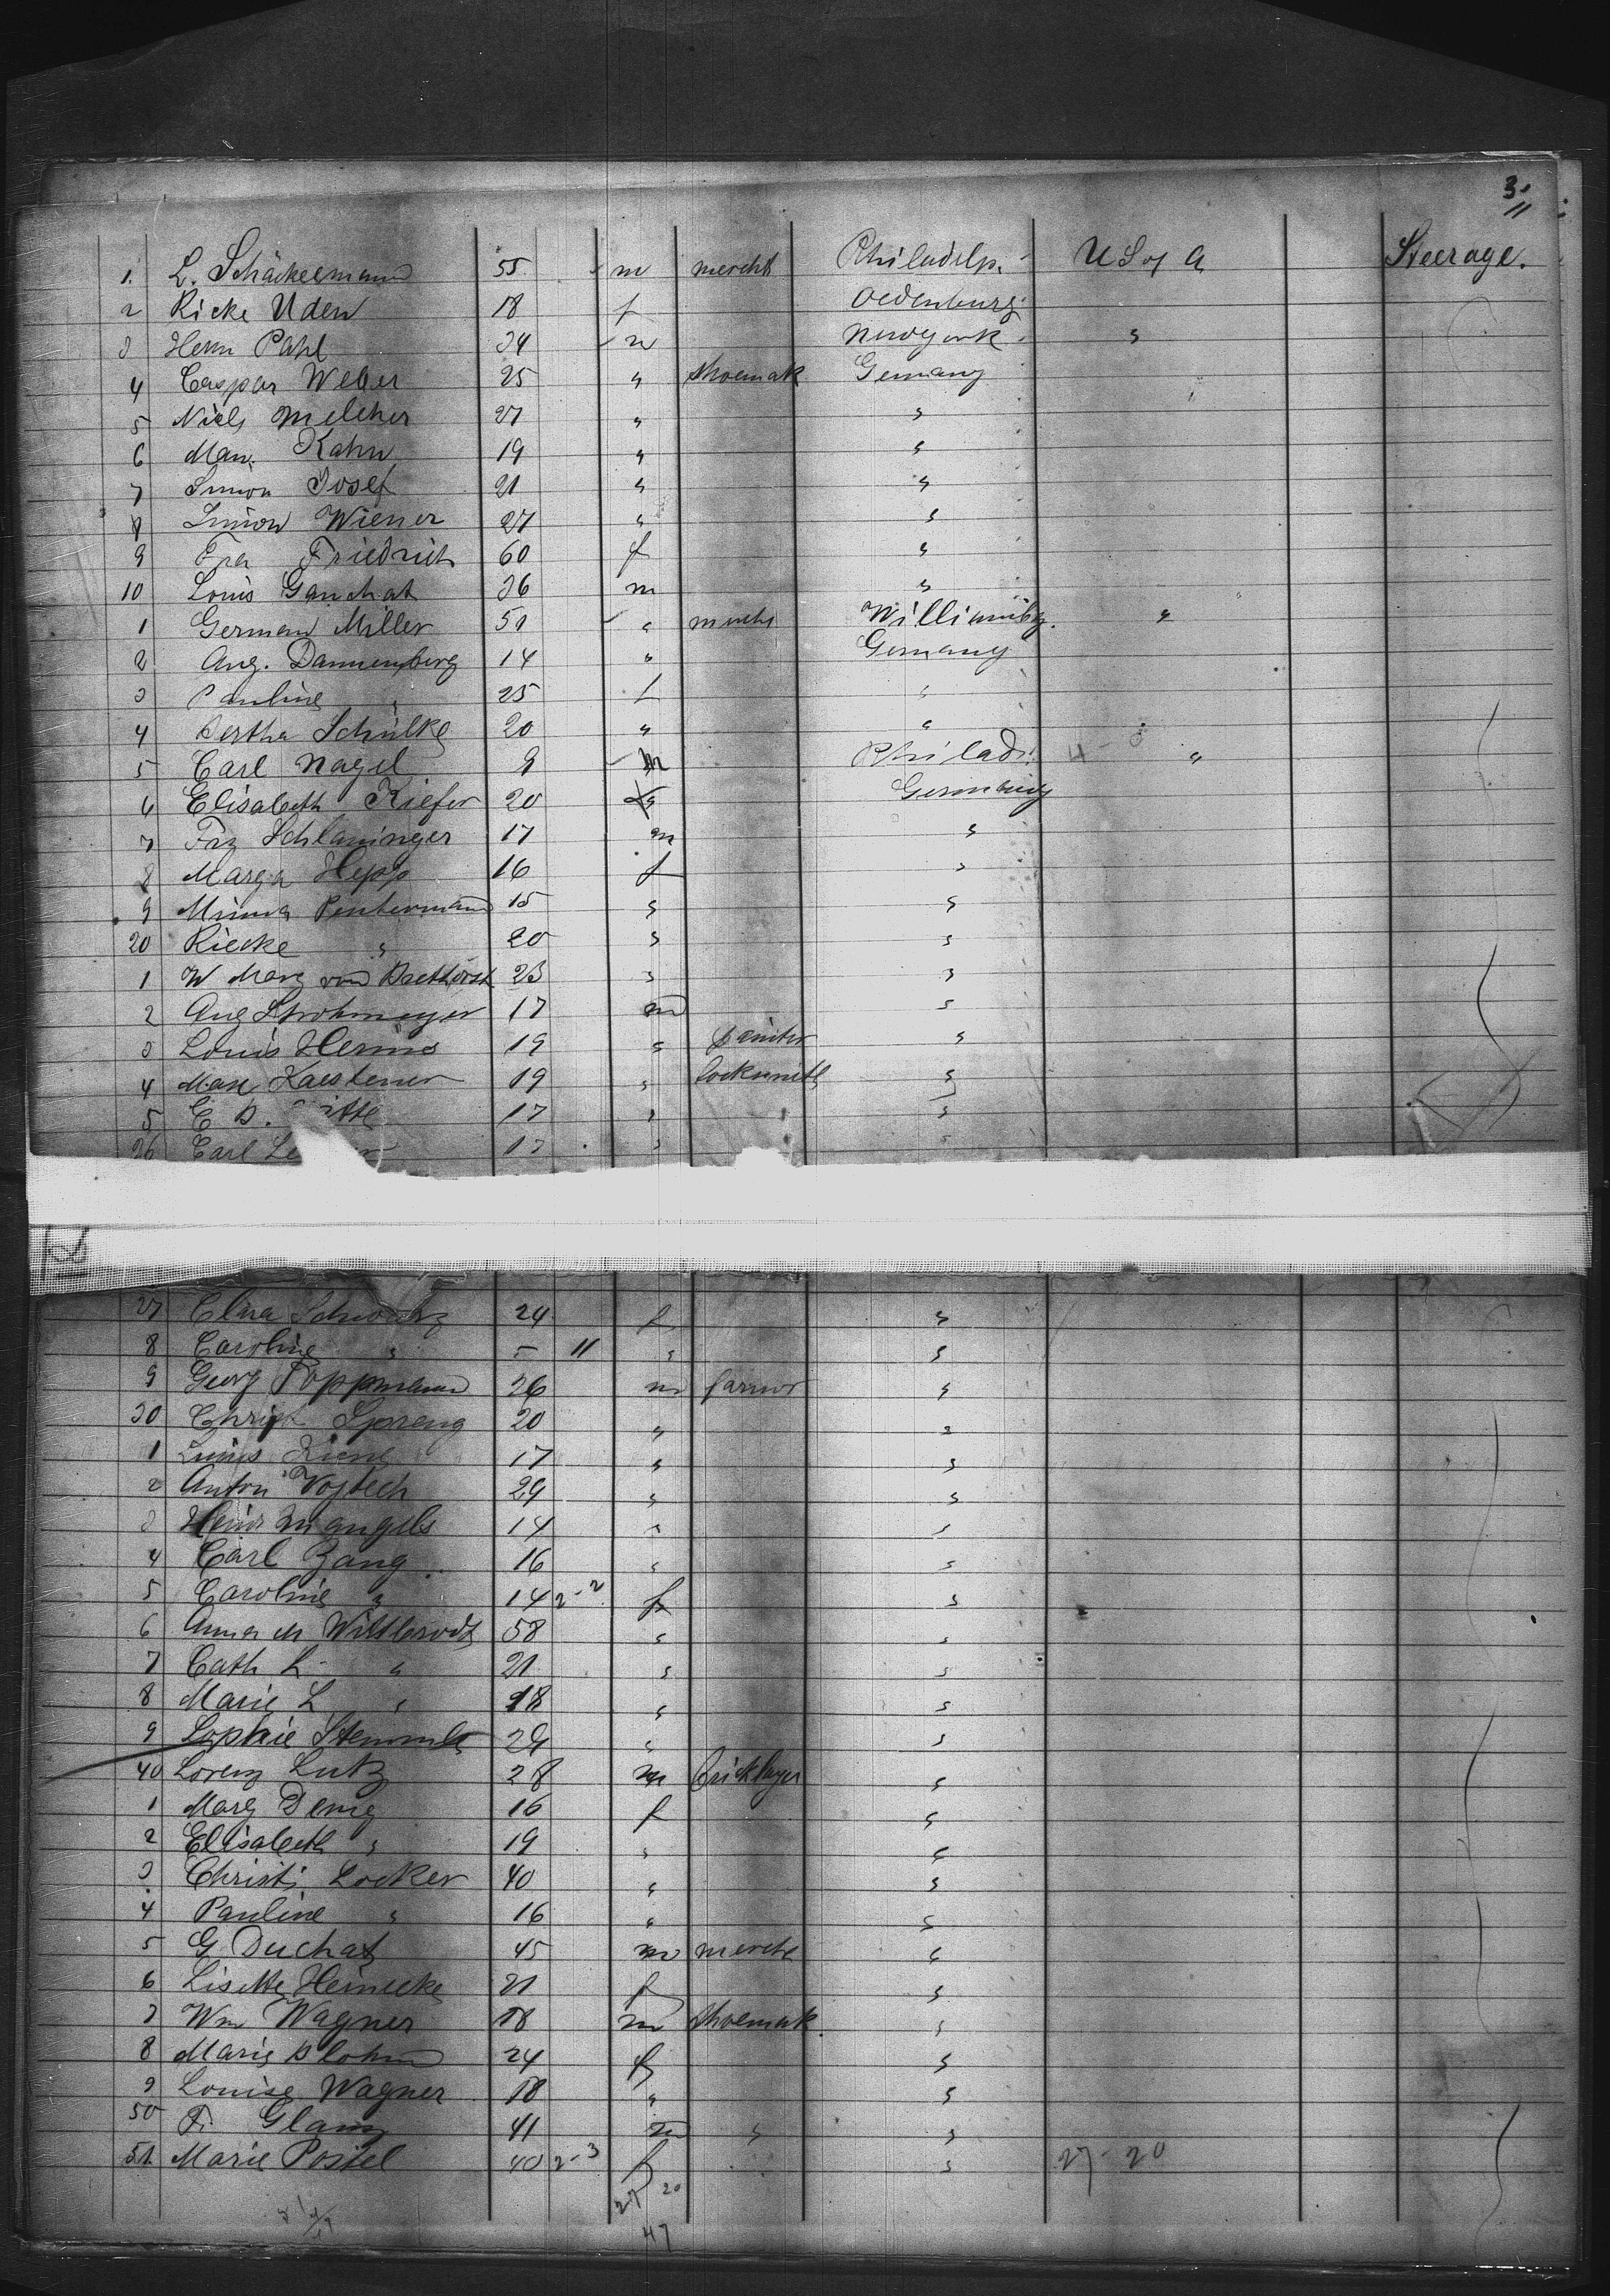 3.
1. L. Schäckermann 55 m mercht Philadelp. U S of A Steerage.
2 Ricke Uden 18 f Oldenburg
3 Herm Pahl 34 m Newyork "
4 Caspar Weber 25 " shoemak Germany
5 Niels Melcher 27 " "
6 Man. Kahn 19 " "
7 Simon Josef 21 " "
8 Simon Wiener 27 " "
9 Friedrich 60 f "
10 Louis Ganchat 36 m "
1 German Miller 51 " mercht Williamsbg. "
2 Aug. Dannenberg 14 " Germany
3 Pauline " 25 f "
4 Bertha Schülke 20 " "
5 Carl Nagel 9 m Philad. "
6 Elisabeth Kiefer 20 Germany
7 Frz Schlaninger 17 m "
8 Marga Hepp 16 f "
9 Minna Pentermann 15 " "
20 Riecke " 20 " "
1 W Marg von 23 " "
2 Aug Strohmeyer 17 m "
3 Louis 19 " painter "
4 Max Kaestener 19 " locksmith "
5 E B. 17 " "
26 Carl 17 "
27 Clara Schwartz 24 f "
8 Caroline " - 11 " "
9 Georg Poppmann 26 m farmer "
30 Christ Spreng 20 " "
1 Louis 17 " "
2 Anton Vojtech 29 " "
3 Heinr Mangels 14 " "
4 Carl Zang 16 " "
5 Caroline " 14 2-2 f "
6 Anna M 58 " "
7 Cath L " 21 " "
8 Marie L " 18 " "
9 Sophie Stemmle 29 " "
40 Lorenz Lutz 28 m bricklayer "
1 Marg 16 f "
2 Elisabeth " 19 " "
3 Christ. Locker 40 " "
4 Pauline " 16 " "
5 G Duchat 45 m mercht "
6 Lisette Heinecke 21 f "
7 Wm Wagner 18 m shoemak. "
8 Marie Blohm 24 f "
9 Louise Wagner 18 " "
50 F. Glanz 41 m " "
51. Marie Postel 40 2-3 f " 27-20
27 20
47